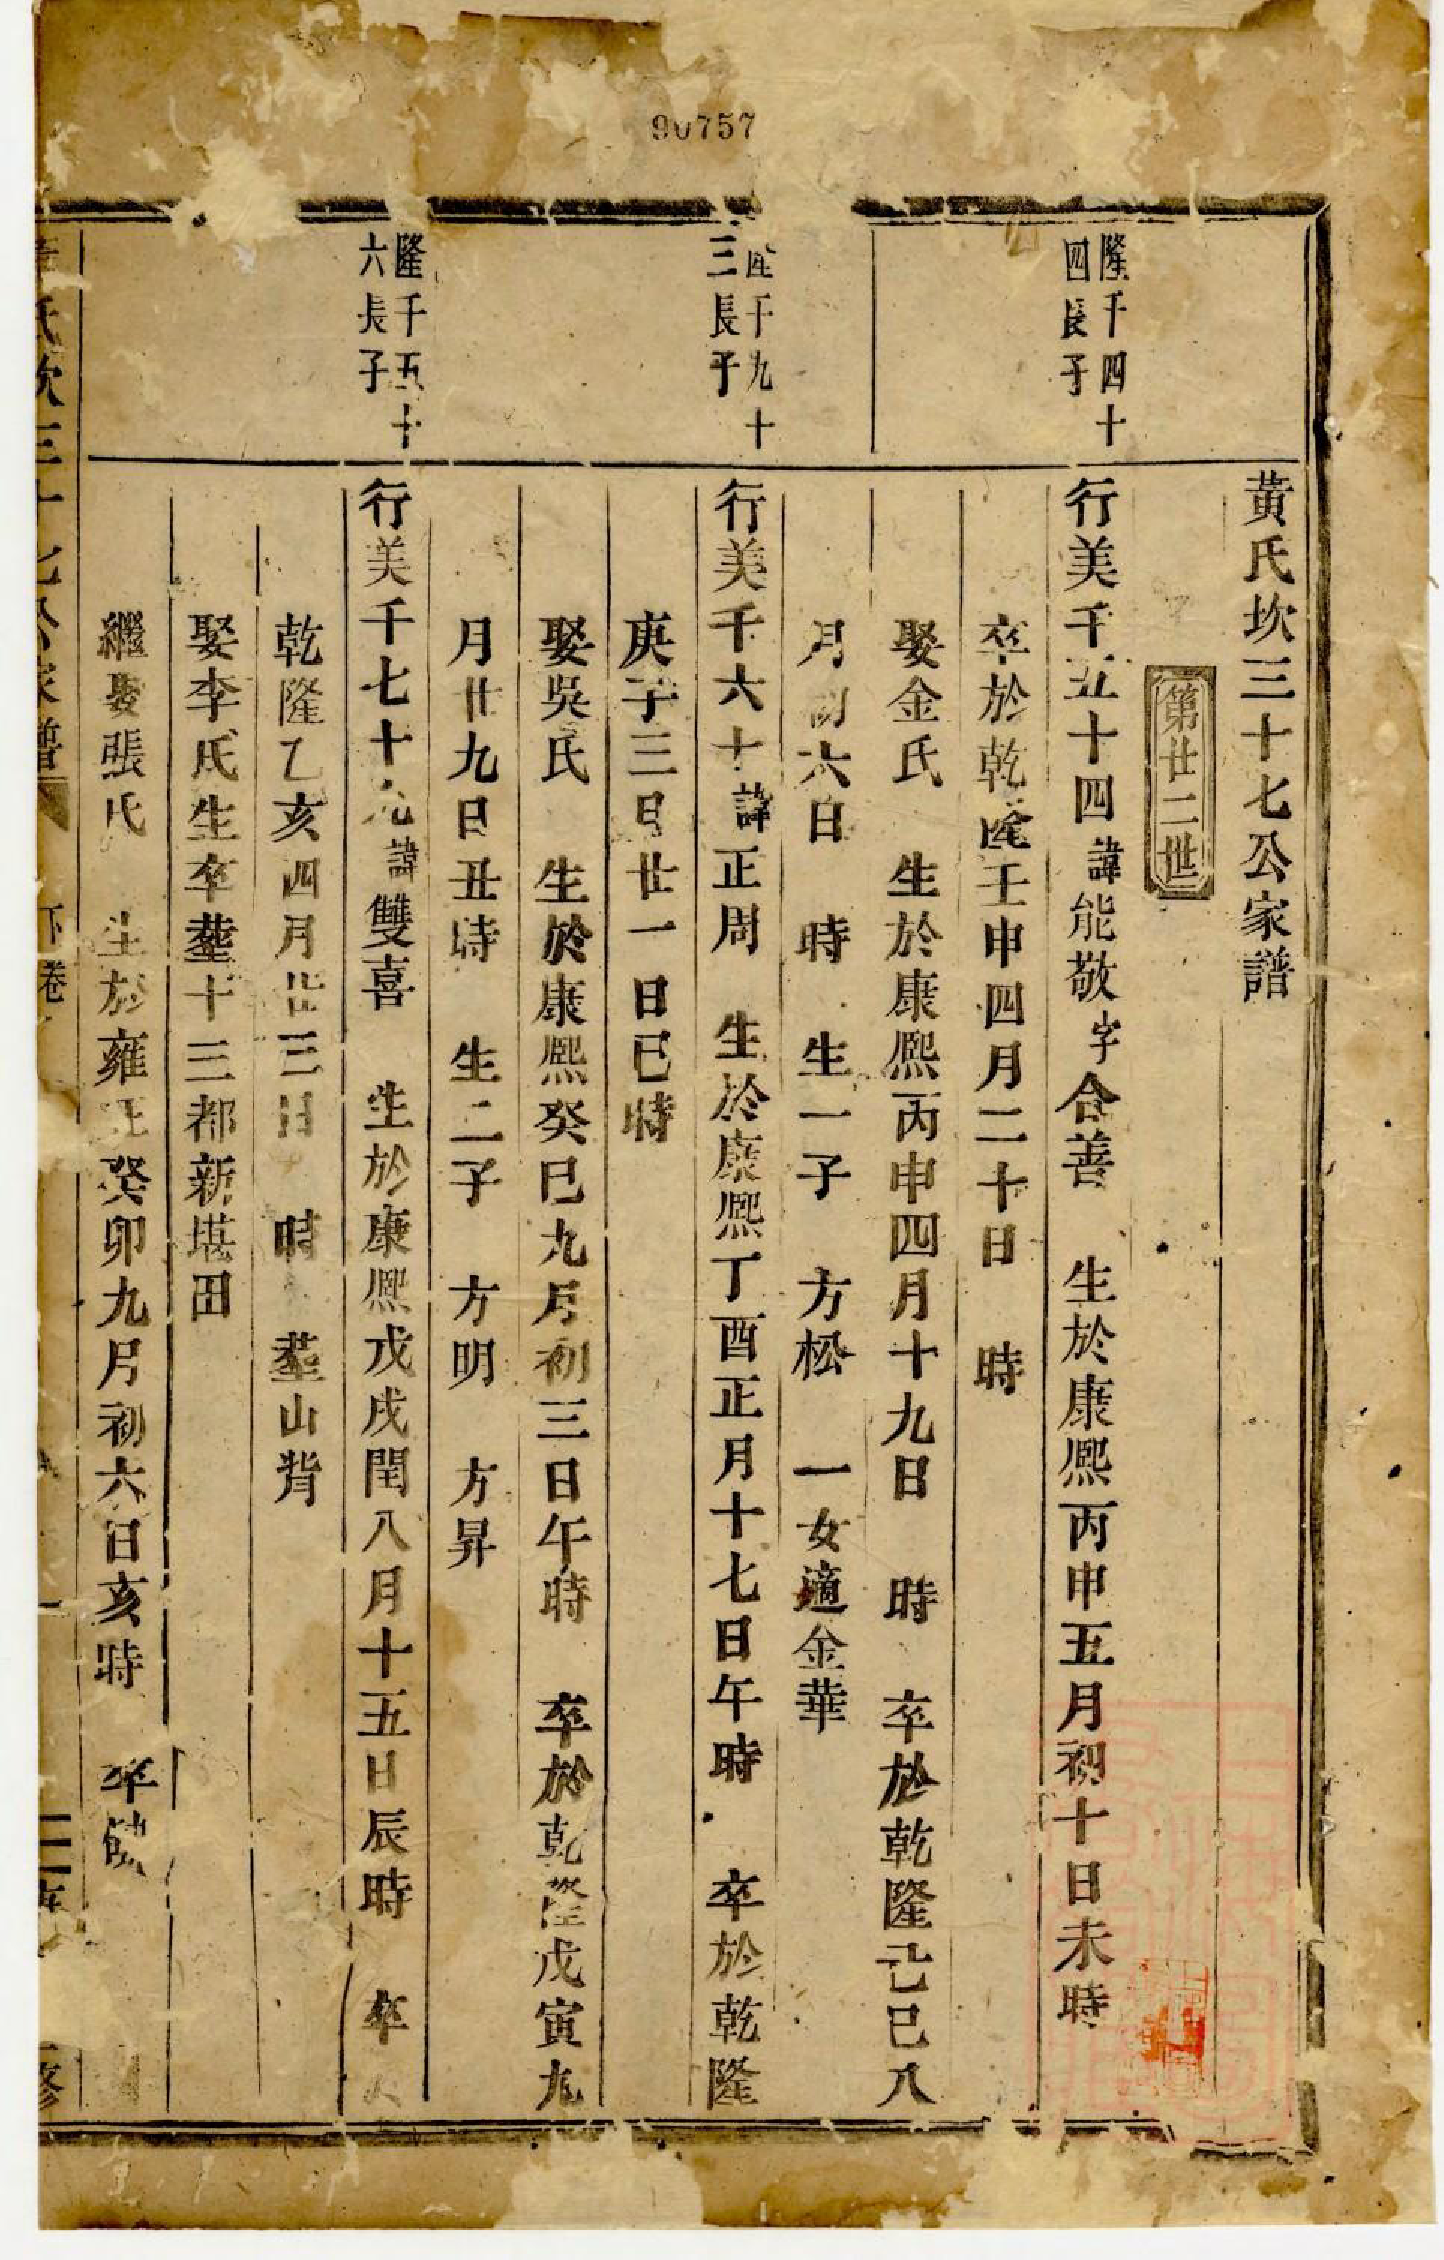 90757
黃氏坎三十七公家譜
第廿二世
隆千四十
四長子
行美千五十四諱能敬字合善 生於康熙丙申五月初十日未時
卒於乾隆壬申四月二十日 時
娶金氏 生於康熙丙申四月十九日 時 卒於乾隆己巳八
月初六日 時 生一子 方松 一女適金華
隆千九十
三長子
行美千六十諱正周 生於康熙丁酉正月十七日午時 卒於乾隆
庚子三月廿一日巳時
娶吳氏 生於康熙癸巳九月初三日午時 卒於乾隆戊寅九
月廿九日丑時 生二子 方明 方昇
隆千五十
六長子
行美千七十九諱雙喜 生於康熙戊戌閏八月十五日辰時 卒於
乾隆乙亥四月廿三日 時 塟山背
娶李氏生卒塟十三都新塘田
繼娶張氏 生於雍正癸卯九月初六日亥時 卒缺
氏坎三十七公家譜 下卷 修